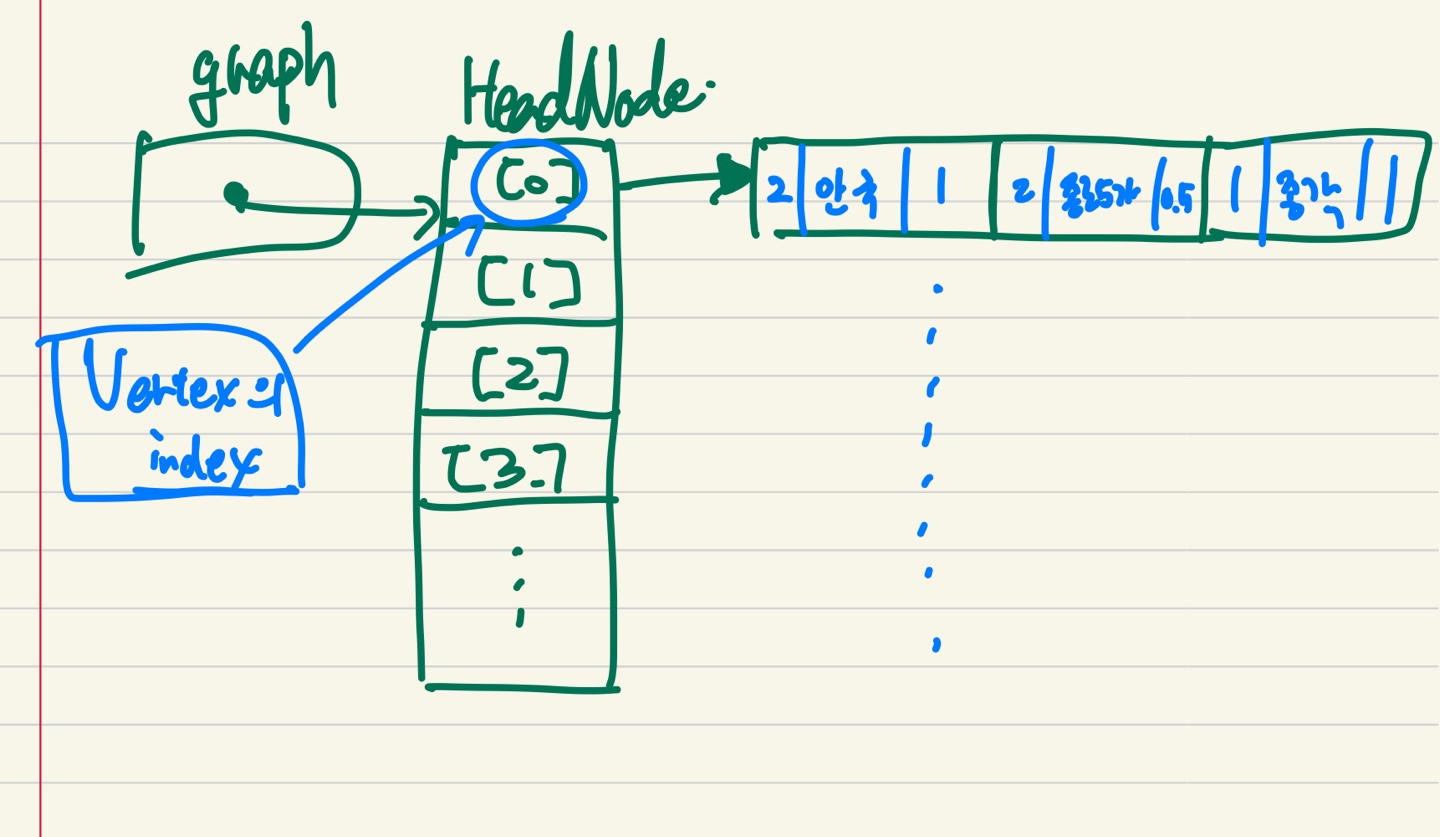 graph
HeadNode
[0]
2 | 안국 | 1
2 | 종로5가 | 0.5
1 | 종각 | 1
[1]
[2]
[3]
Vertex의
index